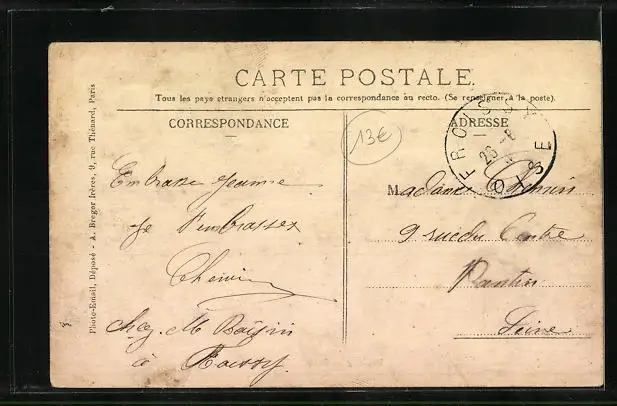 CARTE POSTALE
Tous les pays etrangers n'acceptent pas la correspondance au recto. (Se renseigner à la poste).
CORRESPONDANCE
ADRESSE
13€
FROISSY
26 - 8
OISE
Embrasse Jeanne
Je
Chemin
chez M
à
Madame Chemin
9 rue du Centre
Pantin
Seine
Photo-Email, Déposé - A. Breger frères, 9, rue Thénard, Paris